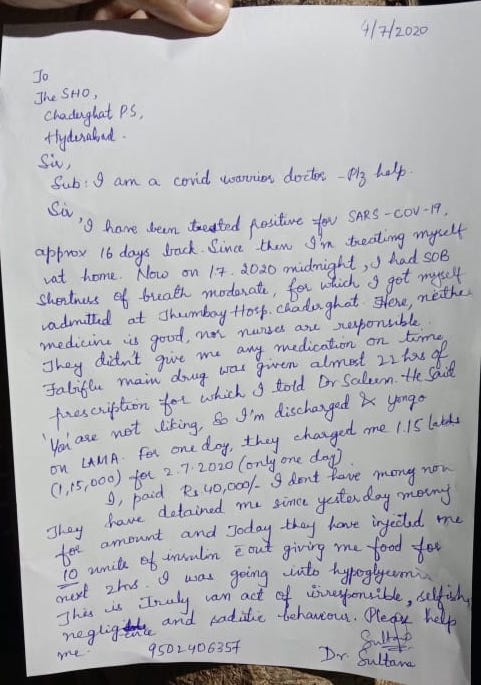 4/7/2020
To
The SHO,
Chaderghat P.S,
Hyderabad.
Sir,
Sub: I am a covid warrior doctor - Plz help.
Sir,
I have been tested positive for SARS-COV-19,
approx 16 days back. Since then I'm treating myself
at home. Now on 1.7.2020 midnight, I had SOB
Shortness of breath moderate, for which I got myself
admitted at Thumbay Hosp. chaderghat. Here, neither
medicine is good, nor nurses are responsible.
They didn't give me any medication on time
Fabiflu main drug was given almost 22 hrs of
prescription for which I told Dr Saleem. He said
'You are not liking, so I'm discharged & you go
on LAMA. For one day, they charged me 1.15 lakhs
(1,15,000) for 2.7.2020 (only one day)
I, paid Rs 40,000/- I dont have mony now
They have detained me since yesterday morng
for amount and Today they have injected me
10 units of insulin c̄ out giving me food for
next 2hrs. I was going into hypoglycemia
This is Truly an act of irresponsible, selfish,
negligence and saditic behaviour. Please help
me. 9502406357
Sultana
Dr. Sultana